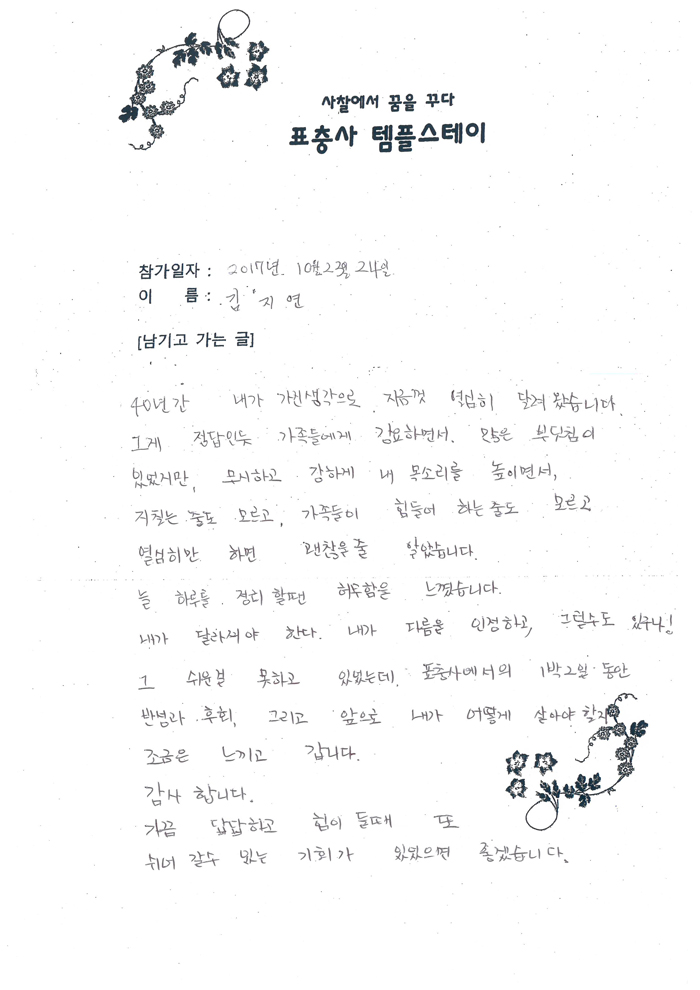 사찰에서 꿈을 꾸다
표충사 템플스테이
참가일자 : 2017년. 10월23일 24일
이 름 : 김 지 연
[남기고 가는 글]
40년간 내가 가진생각으로 지금껏 열심히 달려 왔습니다.
그게 정답인듯 가족들에게 강요하면서. 많은 부딪침이
있었지만, 무시하고 강하게 내 목소리를 높이면서,
지치는 줄도 모르고, 가족들이 힘들어 하는 줄도 모르고
열심히만 하면 괜찮을 줄 알았습니다.
늘 하루를 정리 할땐 허무함을 느꼈습니다.
내가 달라져야 한다. 내가 다름을 인정하고, 그럴수도 있구나!
그 쉬운걸 못하고 있었는데. 표충사에서의 1박2일 동안
반성과 후회, 그리고 앞으로 내가 어떻게 살아야 할지
조금은 느끼고 갑니다.
감사 합니다.
가끔 답답하고 힘이 들때 또
쉬어 갈수 있는 기회가 있었으면 좋겠습니다.